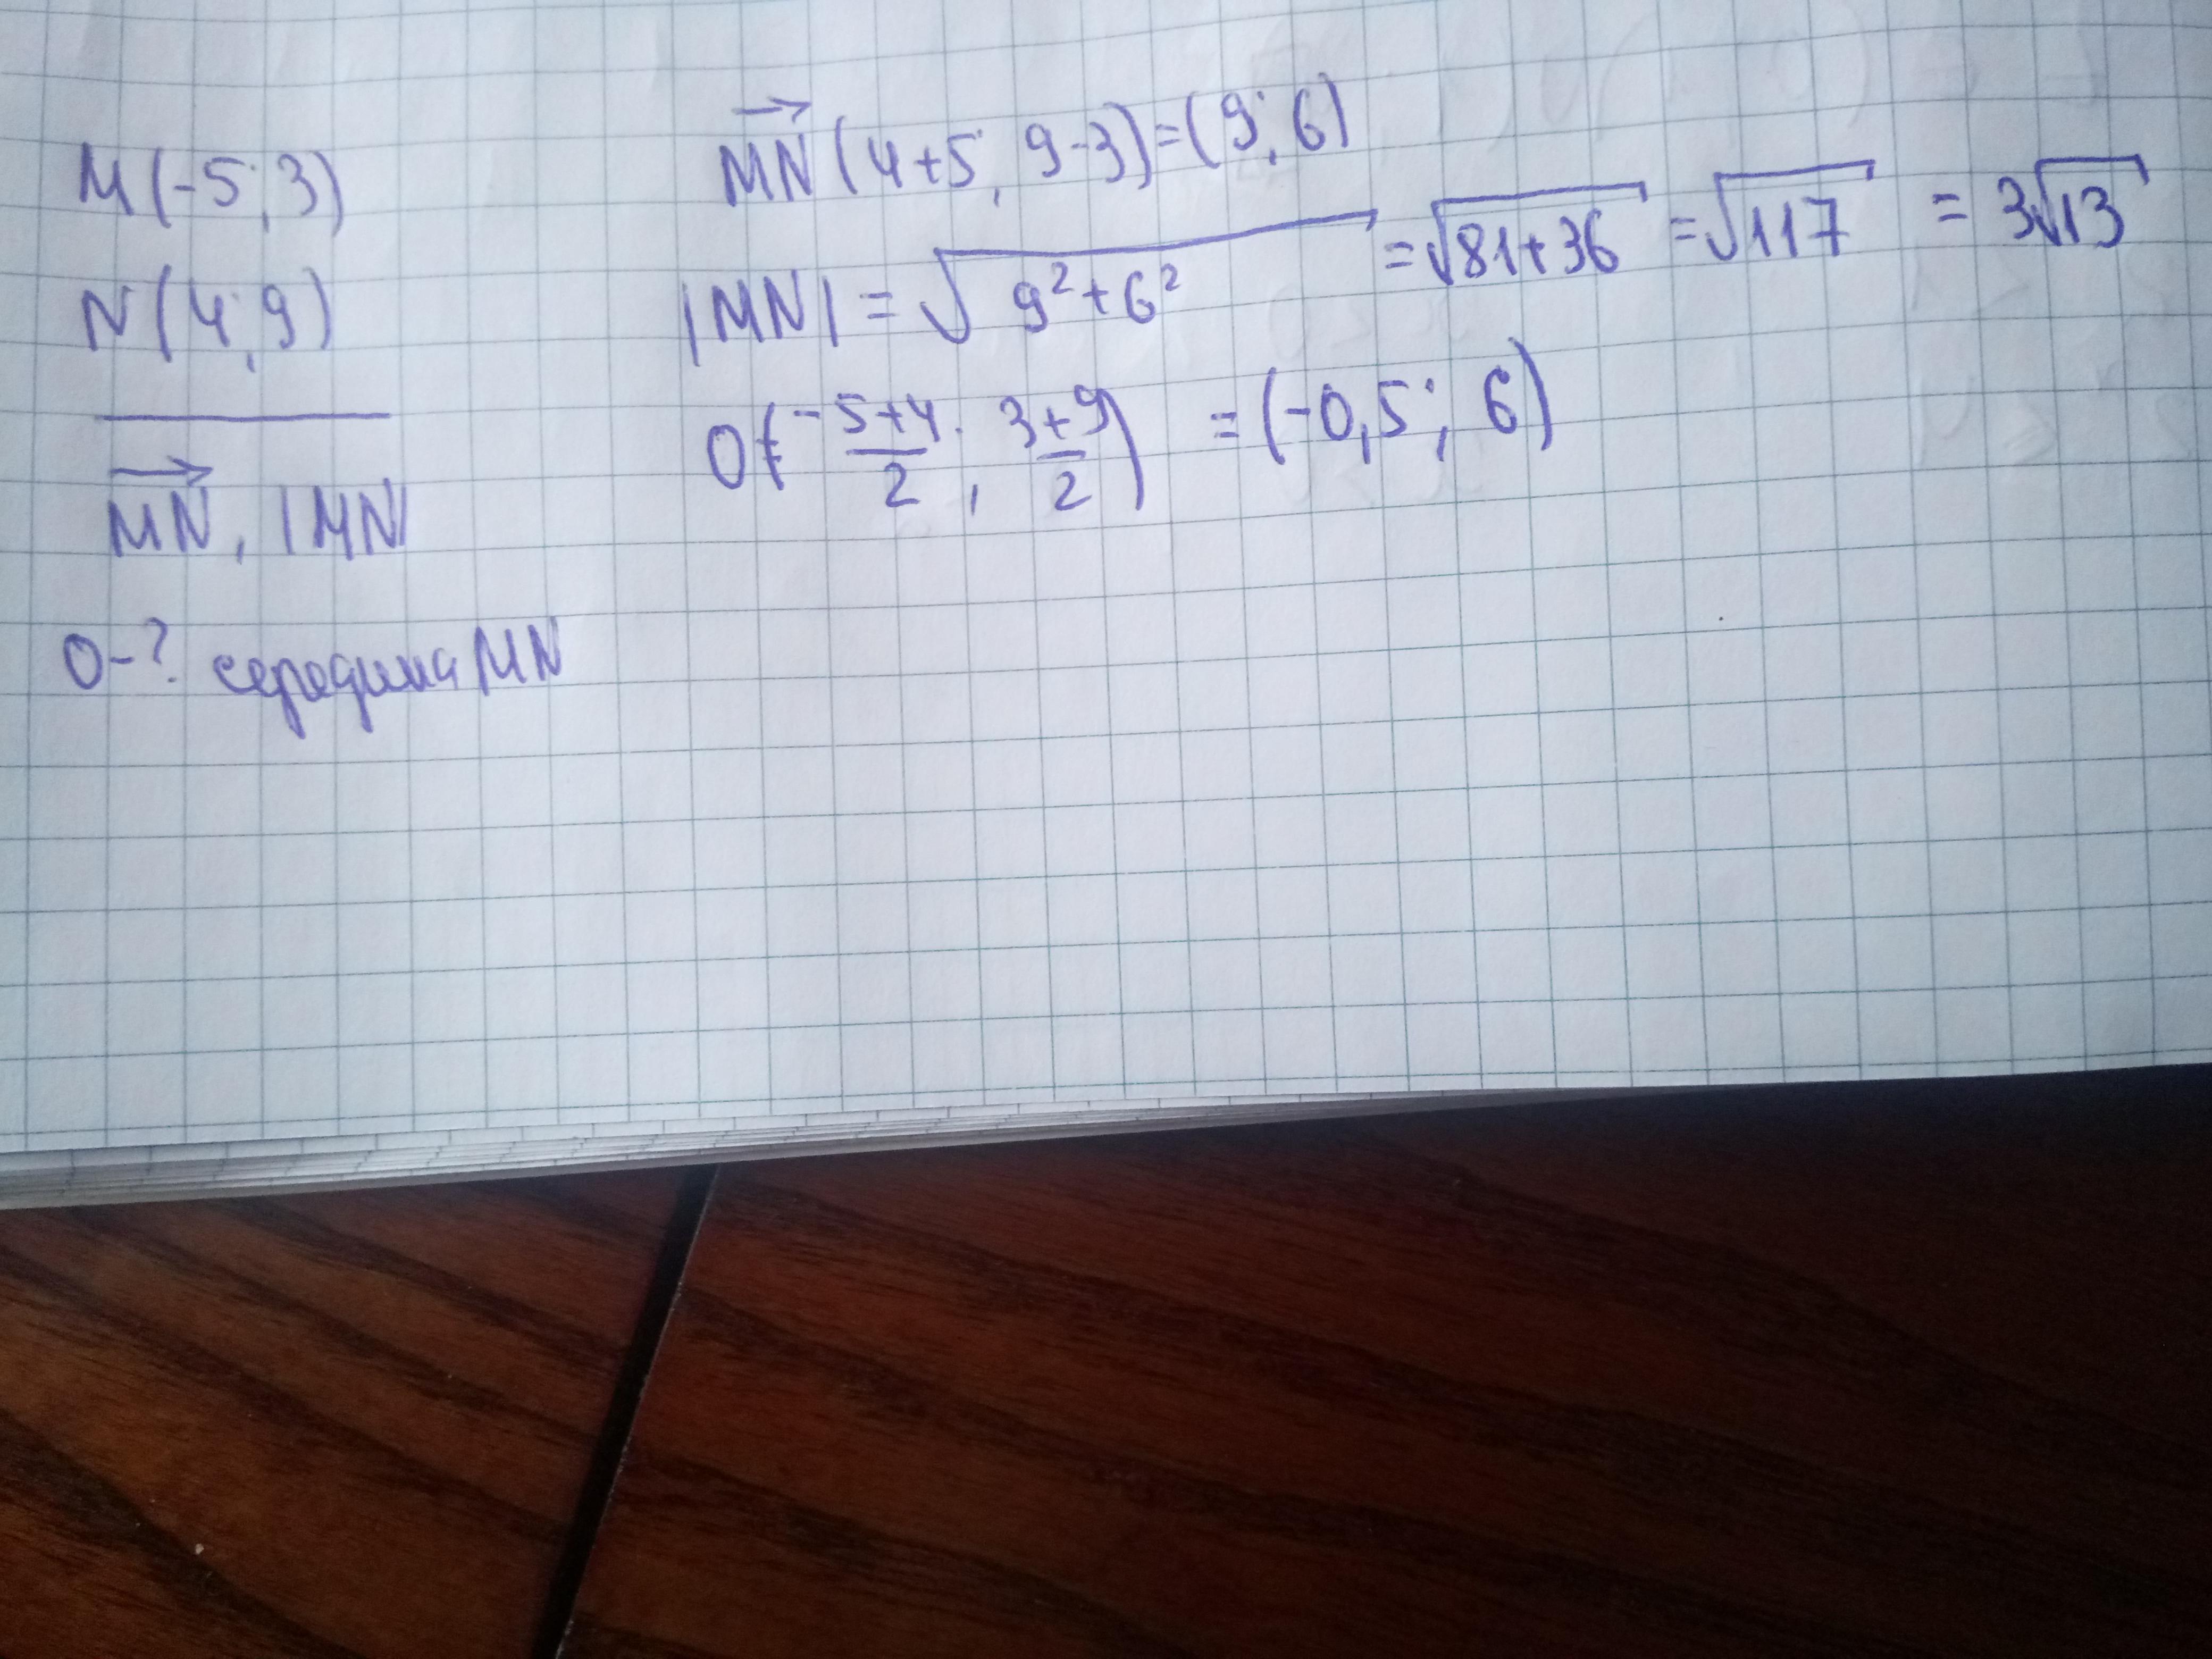 M(-5; 3)
N(4; 9)
MN, |MN|
O-? середина MN
MN(4+5; 9-3)=(9; 6)
|MN| = √9²+6² = √81+36 = √117 = 3√13
O(-5+4/2; 3+9/2) = (-0,5; 6)